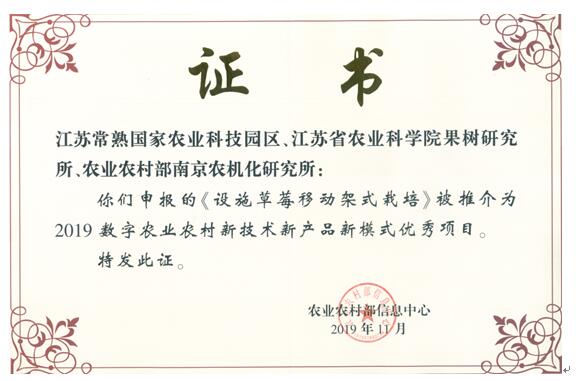 证书
江苏常熟国家农业科技园区、江苏省农业科学院果树研究
所、农业农村部南京农机化研究所：
你们申报的《设施草莓移动架式栽培》被推介为
2019 数字农业农村新技术新产品新模式优秀项目。
特发此证。
农业农村部信息中心
2019 年 11 月